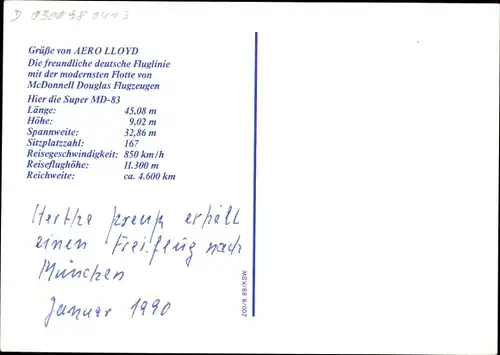 D 030898 0413
Grüße von AERO LLOYD
Die freundliche deutsche Fluglinie
mit der modernsten Flotte von
McDonnell Douglas Flugzeugen
Hier die Super MD-83
Länge: 45,08 m
Höhe: 9,02 m
Spannweite: 32,86 m
Sitzplatzzahl: 167
Reisegeschwindigkeit: 850 km/h
Reiseflughöhe: 11.300 m
Reichweite: ca. 4.600 km
Hertha erhält
einen Freiflug nach
München
Januar 1990
200/8.89/KSW